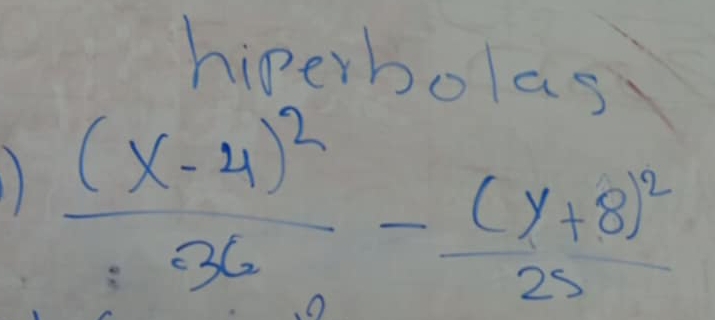 hiperbolas
) (x-4)² / 36 - (y+8)² / 25